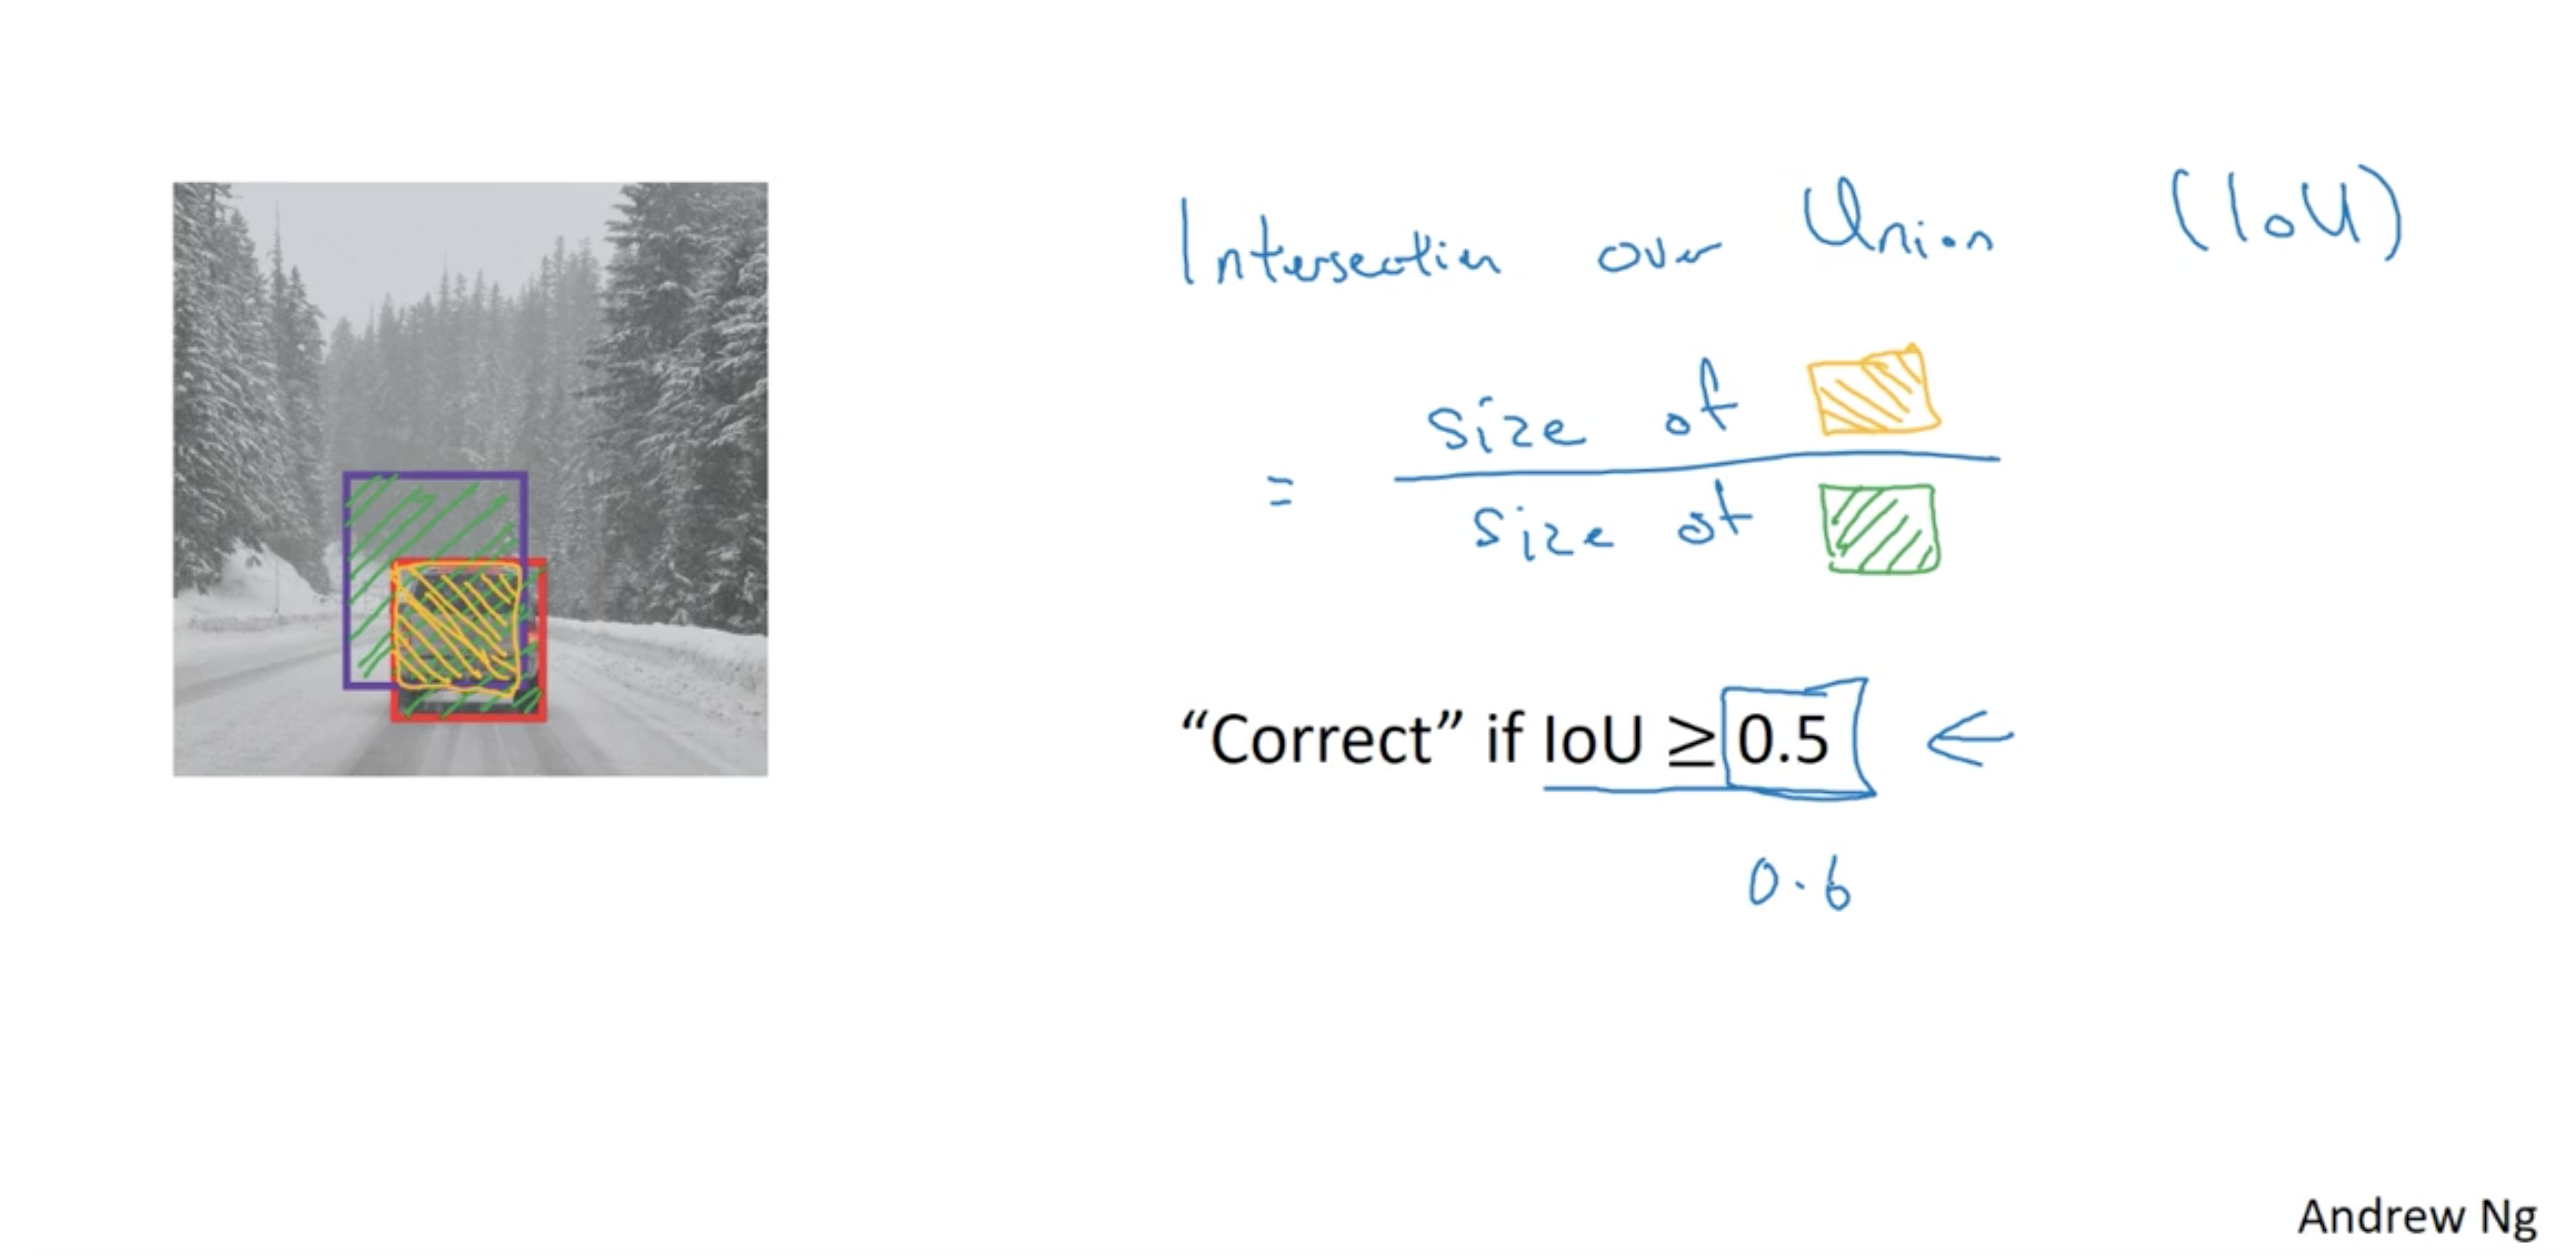 Intersection over Union (IoU)
= size of
size of
“Correct” if IoU ≥ 0.5 ←
0.6
Andrew Ng